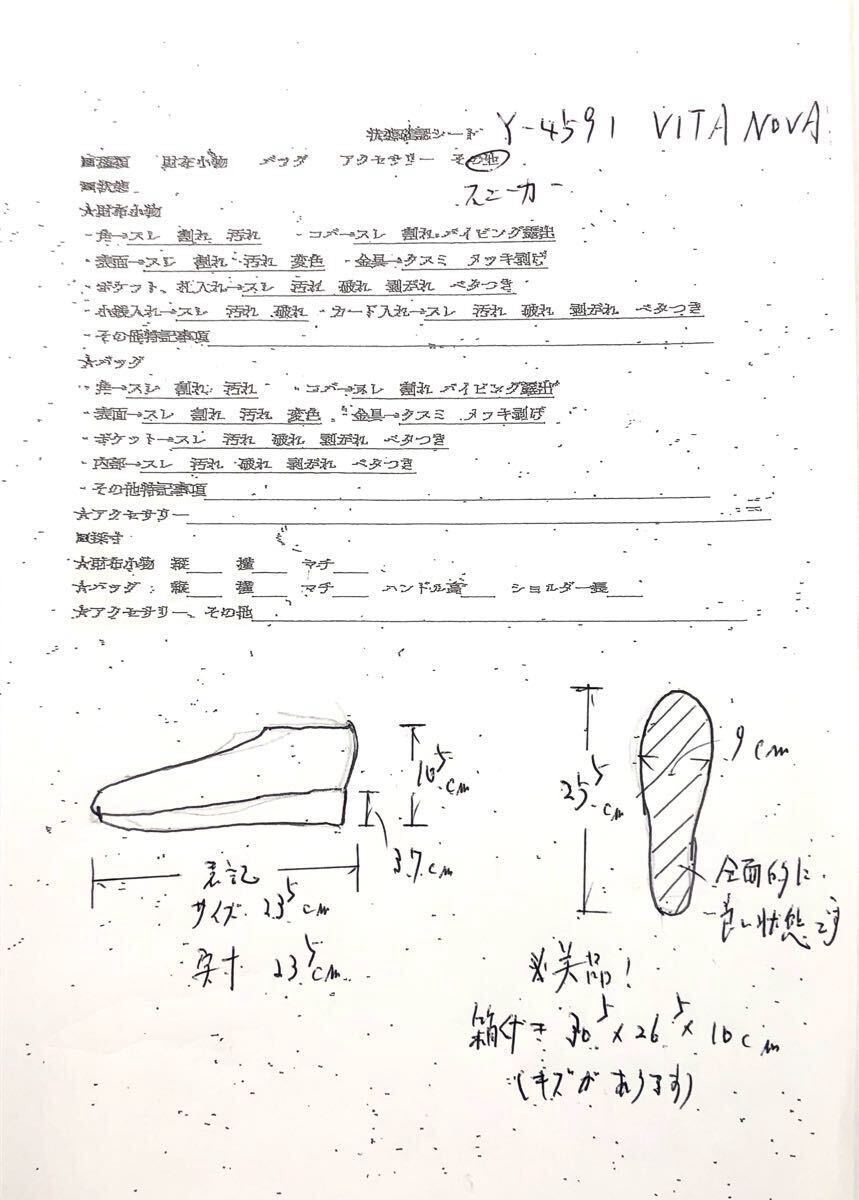 状態確認シート Y-4591 VITA NOVA
■種類 財布小物 バッグ アクセサリー その他
スニーカー
■状態
★財布小物
・角→スレ 割れ 汚れ ・コバ→スレ 割れ パイピング露出
・表面→スレ 割れ 汚れ 変色 ・金具→クスミ メッキ剥げ
・ポケット、札入れ→スレ 汚れ 破れ 剥がれ ベタつき
・小銭入れ→スレ 汚れ 破れ ・カード入れ→スレ 汚れ 破れ 剥がれ ベタつき
・その他特記事項
★バッグ
・角→スレ 割れ 汚れ ・コバ→スレ 割れ パイピング露出
・表面→スレ 割れ 汚れ 変色 ・金具→クスミ メッキ剥げ
・ポケット→スレ 汚れ 破れ 剥がれ ベタつき
・内部→スレ 汚れ 破れ 剥がれ ベタつき
・その他特記事項
★アクセサリー
■採寸
★財布小物 縦 横 マチ
★バッグ 縦 横 マチ ハンドル高 ショルダー長
★アクセサリー、その他
10.5cm
3.7cm
表記
サイズ 23.5cm
実寸 23.5cm
25.5cm
9cm
全面的に
良い状態です
※美品!
箱付き 30.5×26.5×10cm
(キズがあります)